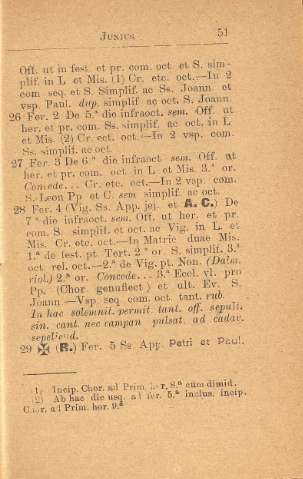 JUNIUS 51
Off. ut in fest. et pr. com. oct. et S. sim-
plif. in L et Mis. (1) Cr. etc. oct.—In 2
com seq. et S. Simplif ac Ss. Joann. et
vsp. Paul. dup. simplif ac oct. S. Joann.
26 Fer. 2 De 5.ª die infraoct. sem. Off ut
her. et pr. com. Ss. simplif. ac oct. in L
et Mis. (2) Cr. ect. oct.—In 2 vsp. com.
Ss. simplif. ac oct.
27 Fer. 3 De 6.ª die infraoct sem. Off. ut
her. et pr. com. oct in L et Mis. 3.ª or.
Concede... Cr. etc. oct.—In 2 vsp. com.
S. Leon Pp et C. sem simplif. ac oct.
28 Fer. 4 (Vig. Ss. App. jej. et A. C.) De
7.ª die infraoct. sem. Off. ut her. et pr.
com. S. simplif. et oct. ac Vig. in L. et
Mis. Cr. etc. oct.—In Matric duae Mis.
1.ª de fest. pt. Tert. 2.ª or. S. simplif. 3.ª
oct. rel. oct.—2.ª de Vig. pt. Non. (Dalm.
viol.) 2.ª or. Concede... 3.ª Eccl. vl. pro
Pp. (Chor. genuflect) et ult. Ev. S.
Joann.—Vsp. seq. com. oct. tant. rub.
In hac solemnit. permit. tant. off. sepult.
sin. cant. nec campan pulsat. ad cadav.
sepeliend.
29 ✠ (R.) Fer. 5 Ss App. Petri et Paul.
(1) Incip. Chor. ad Prim. hor. 8.ª cum dimid.
(2) Ab hac die usq. ad fer. 5.ª inclus. incip.
Chor. ad Prim. hor. 9.ª